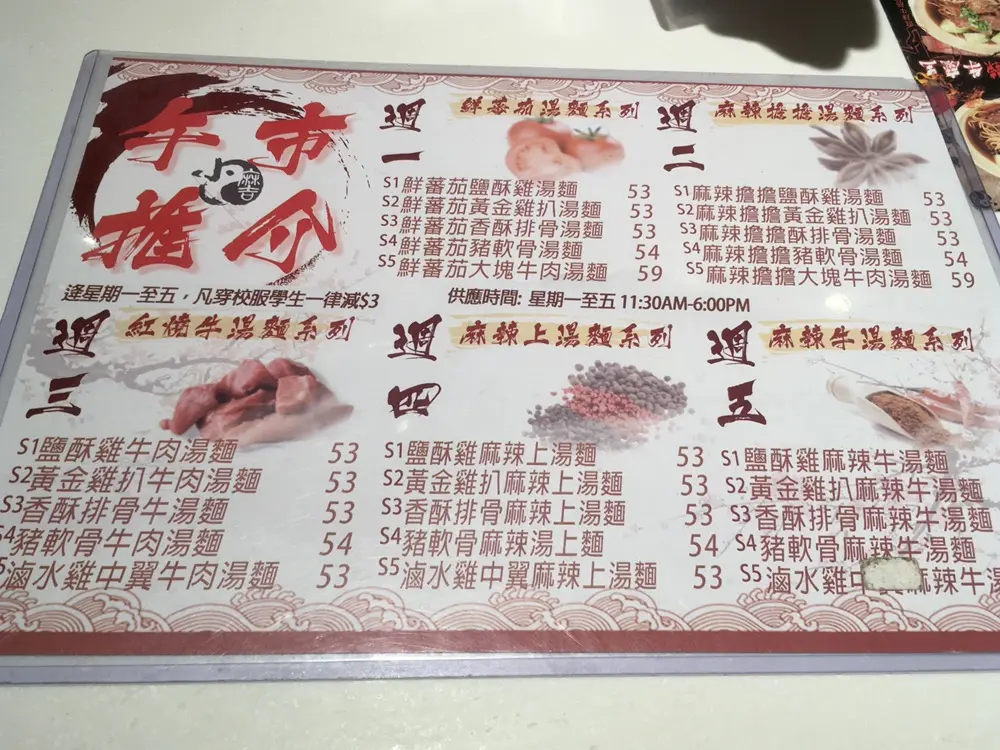 午市推介
小
麻吉
逢星期一至五，凡穿校服學生一律減$3
供應時間: 星期一至五 11:30AM-6:00PM
週一
鮮蕃茄湯麵系列
S1鮮蕃茄鹽酥雞湯麵 53
S2鮮蕃茄黃金雞扒湯麵 53
S3鮮蕃茄香酥排骨湯麵 53
S4鮮蕃茄豬軟骨湯麵 54
S5鮮蕃茄大塊牛肉湯麵 59
週二
麻辣擔擔湯麵系列
S1麻辣擔擔鹽酥雞湯麵 53
S2麻辣擔擔黃金雞扒湯麵 53
S3麻辣擔擔酥排骨湯麵 53
S4麻辣擔擔豬軟骨湯麵 54
S5麻辣擔擔大塊牛肉湯麵 59
週三
紅燒牛湯麵系列
S1鹽酥雞牛肉湯麵 53
S2黃金雞扒牛肉湯麵 53
S3香酥排骨牛湯麵 53
S4豬軟骨牛肉湯麵 54
S5滷水雞中翼牛肉湯麵 53
週四
麻辣上湯麵系列
S1鹽酥雞麻辣上湯麵 53
S2黃金雞扒麻辣上湯麵 53
S3香酥排骨麻辣上湯麵 53
S4豬軟骨麻辣湯上麵 54
S5滷水雞中翼麻辣上湯麵 53
週五
麻辣牛湯麵系列
S1鹽酥雞麻辣牛湯麵
S2黃金雞扒麻辣牛湯麵
S3香酥排骨麻辣牛湯麵
S4豬軟骨麻辣牛湯麵
S5滷水雞中翼麻辣牛湯